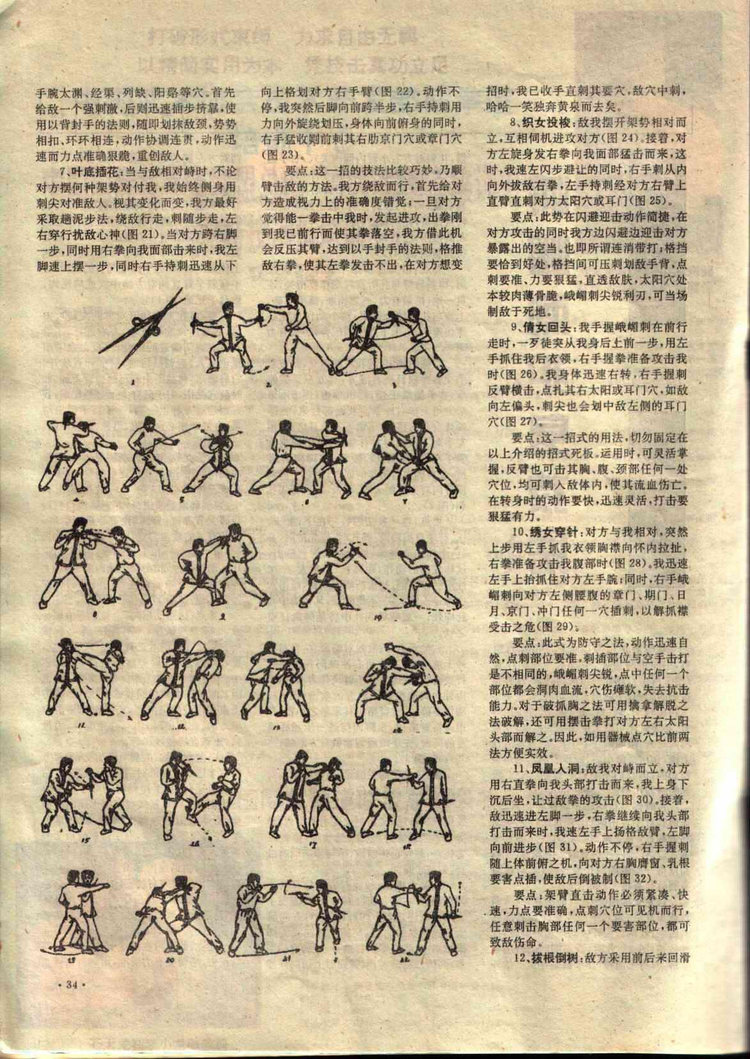 手腕太渊、经渠、列缺、阳谿等穴。首先
给敌一个强刺激,后则迅速插步挤靠,使
用以背封手的法则,随即划抹敌颈,势势
相扣、环环相连,动作协调连贯,动作迅
速而力点准确狠脆,重创敌人。
7、叶底插花:当与敌相对峙时,不论
对方摆何种架势对付我,我始终侧身用
刺尖对准敌人。视其变化而变,我方最好
采取趟泥步法,绕敌行走,刺随步走,左
右穿行扰敌心神(图 21)。当对方跨右脚
一步,同时用右拳向我面部击来时,我左
脚速上摆一步,同时右手持刺迅速从下
向上格划对方右手臂(图 22)。动作不
停,我突然后脚向前跨半步,右手持刺用
力向外旋绕划压,身体向前俯身的同时,
右手猛收剜前刺其右肋京门穴或章门穴
(图 23)。
要点:这一招的技法比较巧妙,乃顺
臂击敌的方法。我方绕敌而行,首先给对
方造成视力上的准确度错觉;一旦对方
觉得能一拳击中我时,发起进攻,出拳刚
到我已前行而使其拳落空,我方借此机
会反压其臂,达到以手封手的法则,格推
敌右拳,使其左拳发击不出,在对方想变
招时,我已收手直刺其要穴,敌穴中刺,
哈哈一笑独奔黄泉而去矣。
8、织女投梭:敌我摆开架势相对而
立,互相伺机进攻对方(图 24)。接着,对
方左旋身发右拳向我面部猛击而来,这
时,我速左闪步避让的同时,右手刺从内
向外拔敌右拳,左手持刺经对方右臂上
直臂直刺对方太阳穴或耳门(图 25)。
要点:此势在闪避迎击动作简捷,在
对方攻击的同时我方边闪避边迎击对方
暴露出的空当。也即所谓连消带打;格挡
要恰到好处,格挡间可压刺划敌手背,点
刺要准、力要狠猛,直透敌肤,太阳穴处
本较肉薄骨脆,峨嵋刺尖锐利刃,可当场
制敌于死地。
9、倩女回头:我手握峨嵋刺在前行
走时,一歹徒突从我身后上前一步,用左
手抓住我后衣领,右手握拳准备攻击我
时(图 26)。我身体迅速右转,右手握刺
反臂横击,点扎其右太阳或耳门穴,如敌
向左偏头,刺尖也会划中敌左侧的耳门
穴(图 27)。
要点:这一招式的用法,切勿固定在
以上介绍的招式死板。运用时,可灵活掌
握,反臂也可击其胸、腹、颈部任何一处
穴位,均可刺入敌体内,使其流血伤亡。
在转身时的动作要快,迅速灵活,打击要
狠猛有力。
10、绣女穿针:对方与我相对,突然
上步用左手抓我衣领胸襟向怀内拉扯,
右拳准备攻击我腹部时(图 28)。我迅速
左手上抬抓住对方左手腕;同时,右手峨
嵋刺向对方左侧腰腹的章门、期门、日
月、京门、冲门任何一穴插刺,以解抓襟
受击之危(图 29)。
要点:此式为防守之法,动作迅速自
然,点刺部位要准。刺插部位与空手击打
是不相同的,峨嵋刺尖锐,点中任何一个
部位都会洞肉血流,穴伤瘫软,失去抗击
能力。对于破抓胸之法可用擒拿解脱之
法破解,还可用摆击拳打对方左右太阳
头部而解之。因此,如用器械点穴比前两
法方便实效。
11、凤凰入洞:敌我对峙而立,对方
用右直拳向我头部打击而来,我上身下
沉后坐,让过敌拳的攻击(图 30)。接着,
敌迅速进左脚一步,右拳继续向我头部
打击而来时,我速左手上扬格敌臂,左脚
向前进步(图 31)。动作不停,右手握刺
随上体前俯之机,向对方右胸膺窗、乳根
要害点插,使敌后倒被制(图 32)。
要点:架臂直击动作必须紧凑、快
速,力点要准确,点刺穴位可见机而行,
任意刺击胸部任何一个要害部位,都可
致敌伤命。
12、拔根倒树:敌方采用前后来回滑
1
2
3
4
5
6
7
8
9
10
11
12
13
14
15
16
17
18
19
20
21
22
·34·